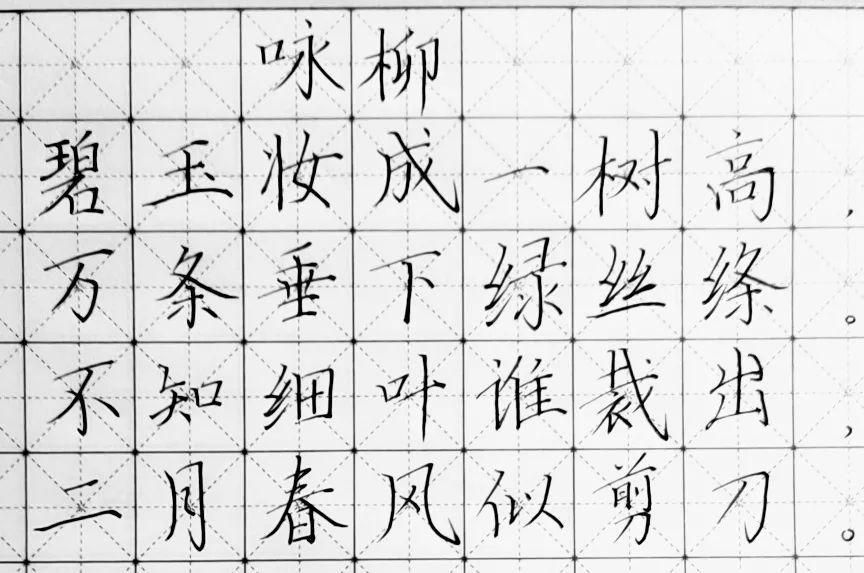 咏柳
碧玉妆成一树高，
万条垂下绿丝绦。
不知细叶谁裁出，
二月春风似剪刀。